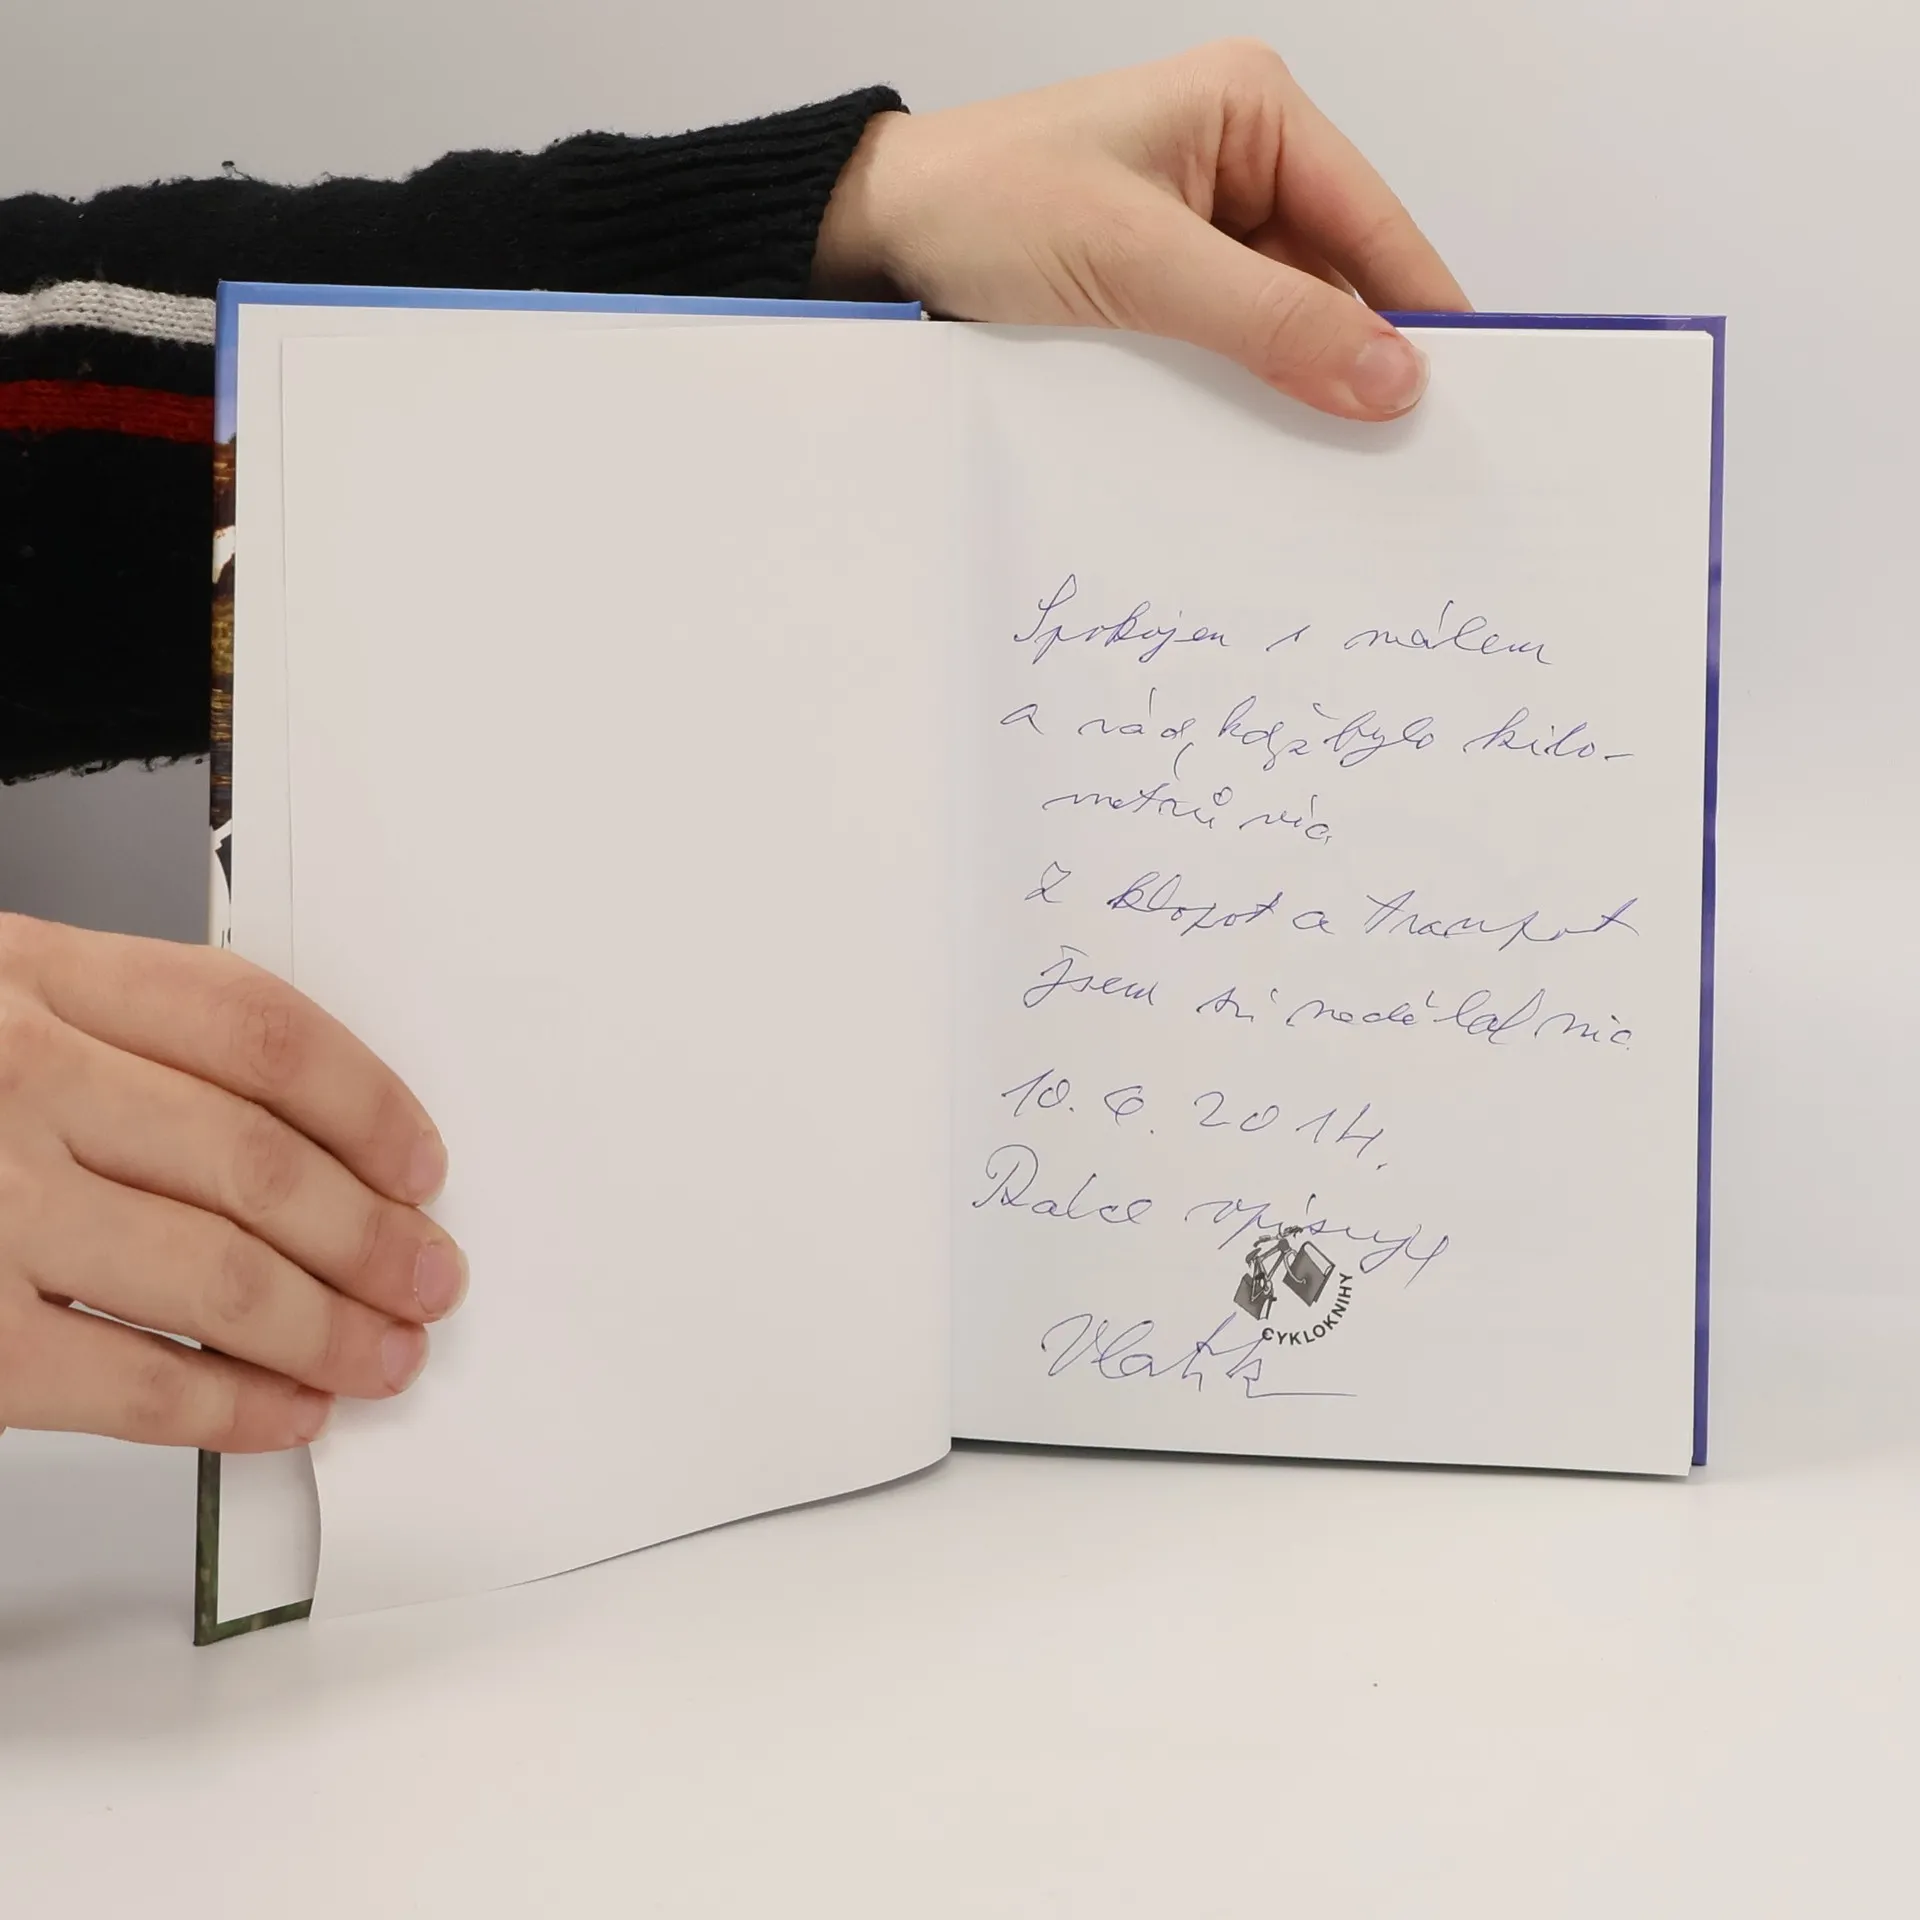 Spokojen s málem
a rád, když bylo kilo-
metrů víc
Z klopot a trampot
jsem si nedělal nic
10. 6. 2014.
Radce vpisuje
CYKLOKNIHY